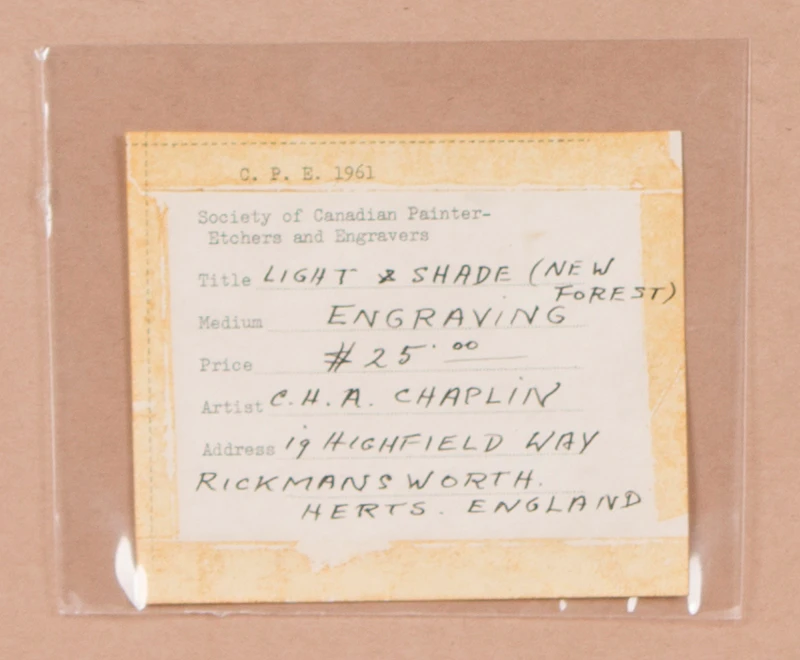 C. P. E. 1961
Society of Canadian Painter-
Etchers and Engravers
Title LIGHT & SHADE (NEW
FOREST)
Medium ENGRAVING
Price #25.00
Artist C.H.A. CHAPLIN
Address 19 HIGHFIELD WAY
RICKMANSWORTH.
HERTS. ENGLAND